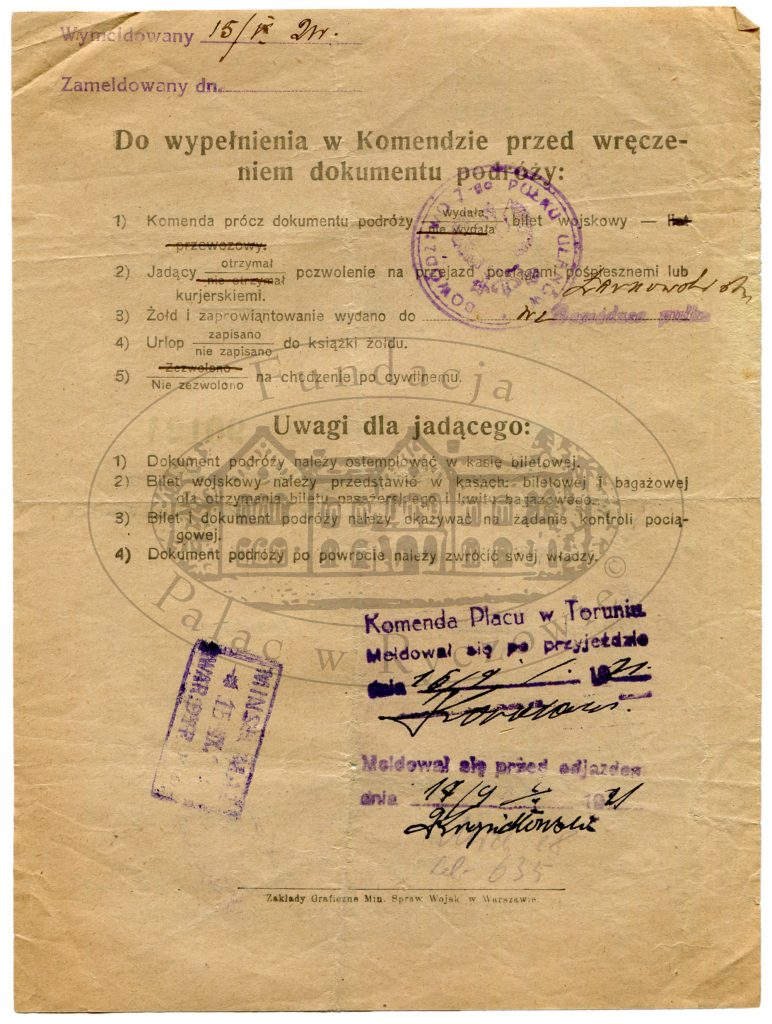 Wymeldowany 15/IX 21r.
Zameldowany dn.
Do wypełnienia w Komendzie przed wręcze-
niem dokumentu podróży:
1) Komenda prócz dokumentu podróży wydała / nie wydała bilet wojskowy — list
przewozowy.
2) Jadący otrzymał / nie otrzymał pozwolenie na przejazd pociągami pośpiesznemi lub
kurjerskiemi.
3) Żołd i zaprowiantowanie wydano do
4) Urlop zapisano / nie zapisano do książki żołdu.
5) Zezwolono / Nie zezwolono na chodzenie po cywilnemu.
DOWÓDZTWO 7-go PUŁKU UŁANÓW
Uwagi dla jadącego:
1) Dokument podróży należy ostemplować w kasie biletowej.
2) Bilet wojskowy należy przedstawić w kasach: biletowej i bagażowej
dla otrzymania biletu pasażerskiego i kwitu bagażowego.
3) Bilet i dokument podróży należy okazywać na żądanie kontroli pocią-
gowej.
4) Dokument podróży po powrocie należy zwrócić swej władzy.
Fundacja
Pałac w Ryczowie ©
Komenda Placu w Toruniu
Meldował się po przyjeździe
dnia 16/9 1921.
MIŃSK MAZ
15 IX
WAR.DYR
Meldował się przed odjazdem
dnia 17/9 1921
tel. 635
Zakłady Graficzne Min. Spraw Wojsk w Warszawie.